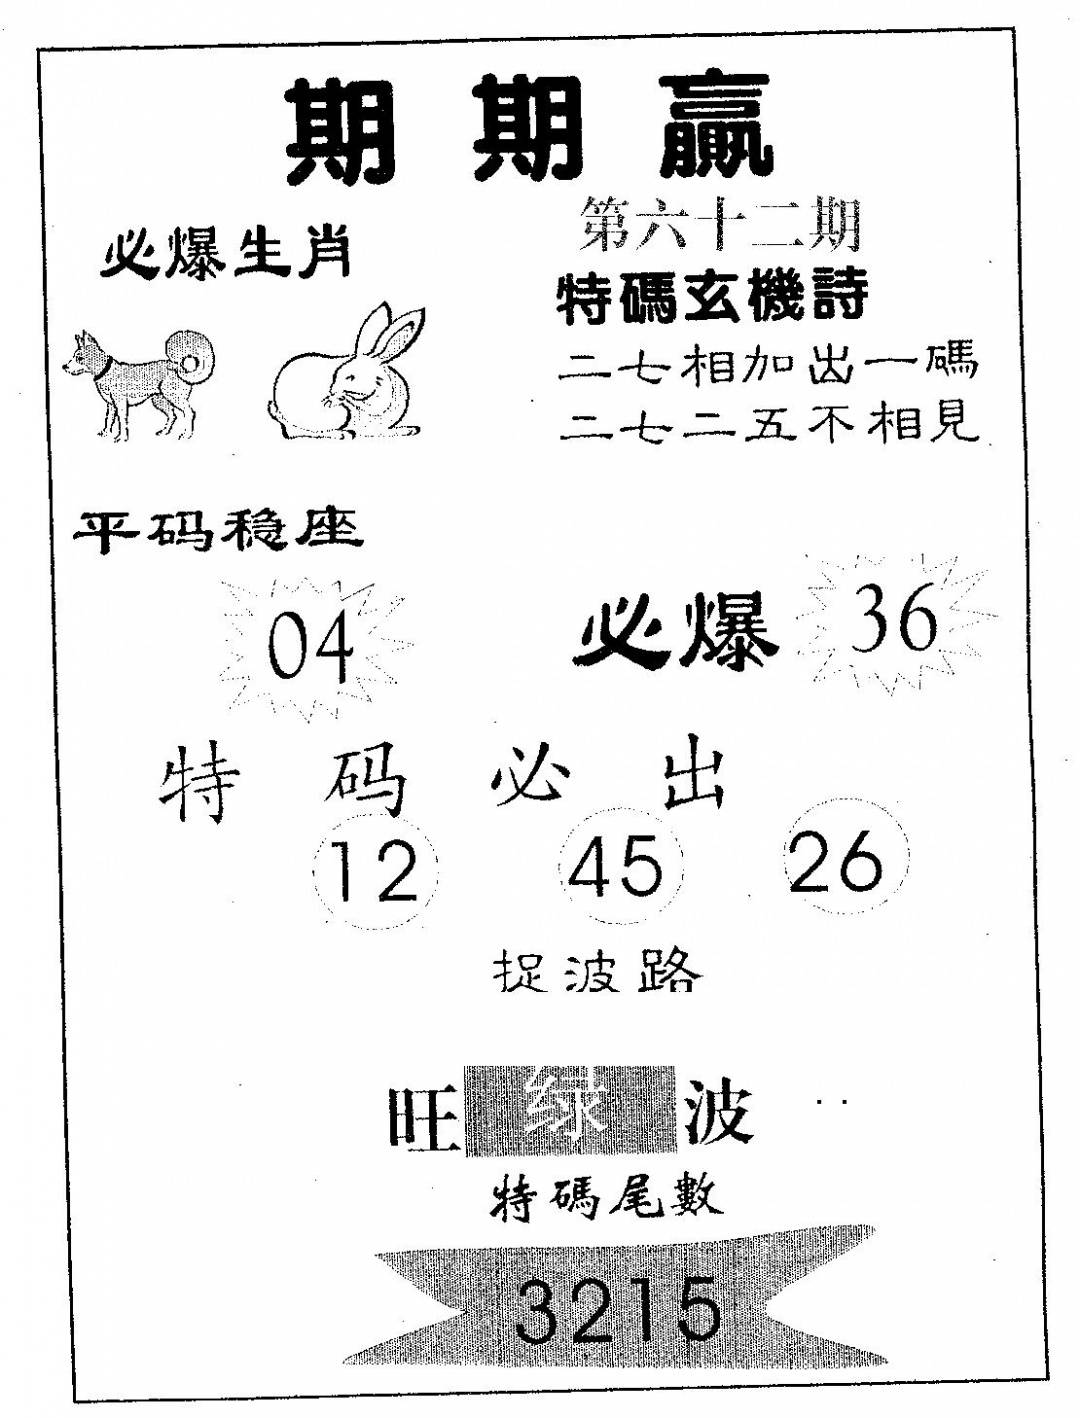 期期贏
第六十二期
必爆生肖
特碼玄機詩
二七相加出一碼
二七二五不相見
平码稳座
04
必爆 36
特码必出
12 45 26
捉波路
旺绿波
特碼尾數
3215